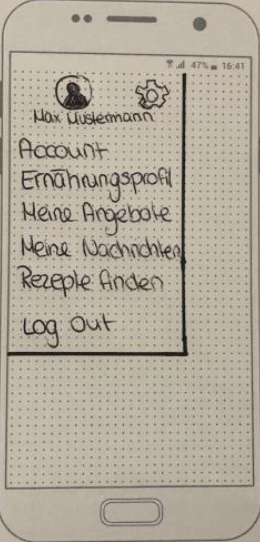 47% 16:41
Max Mustermann
Account
Ernährungsprofil
Meine Angebote
Meine Nachrichten
Rezepte finden
Log Out